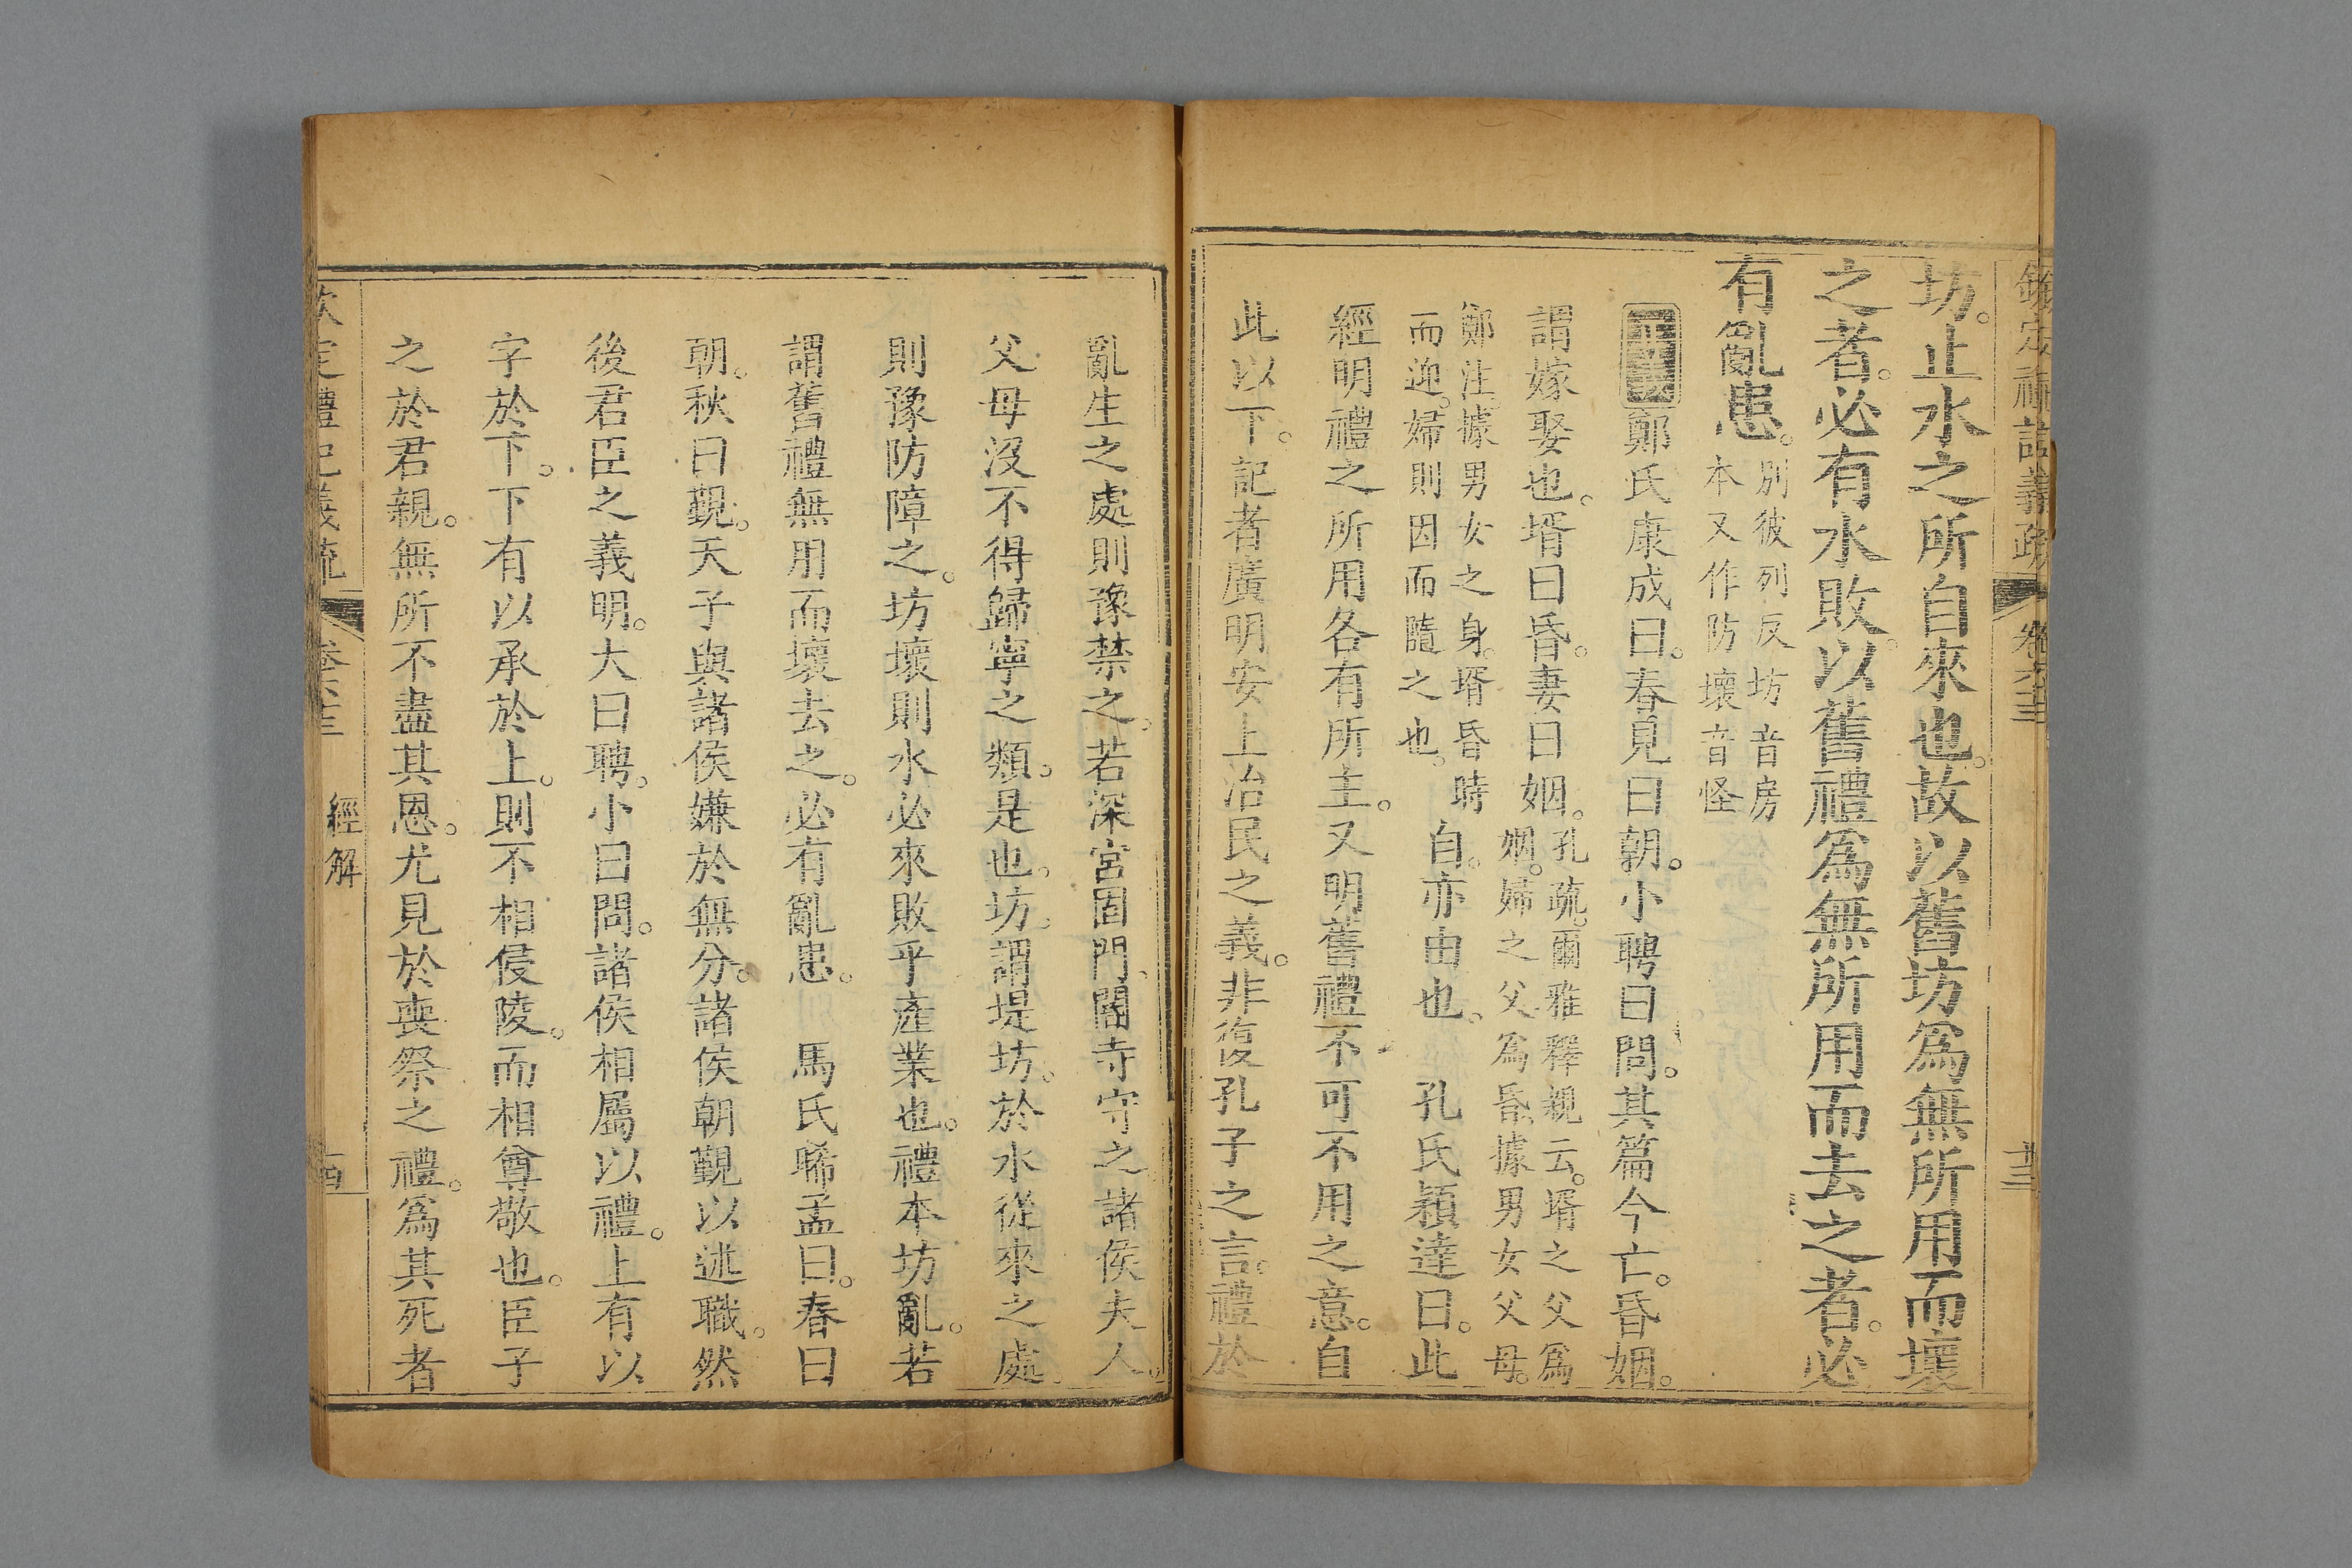 欽定禮記義疏 卷六十三 十三
坊。止水之所自來也。故以舊坊爲無所用而壞
之者。必有水敗。以舊禮爲無所用而去之者。必
有亂患。
別彼列反坊音房
本又作防壞音怪
鄭氏康成曰。春見曰朝。小聘曰問。其篇今亡。昏姻。
謂嫁娶也。壻曰昏。妻曰姻。
孔疏。爾雅釋親云。壻之父爲
姻。婦之父爲昏。據男女父母。
鄭注。據男女之身。壻昏時
而迎。婦則因而隨之也。
自。亦由也。 孔氏穎達曰。此
經明禮之所用各有所主。又明舊禮不可不用之意。自
此以下。記者廣明安上治民之義。非復孔子之言。禮於
亂生之處則豫禁之。若深宮固門。閽寺守之。諸侯夫人。
父母沒不得歸寧之類。是也。坊。謂堤坊。於水從來之處。
則豫防障之。坊壞則水必來敗乎產業也。禮本坊亂。若
謂舊禮無用而壞去之。必有亂患。 馬氏晞孟曰。春曰
朝。秋曰覲。天子與諸侯嫌於無分。諸侯朝覲以述職。然
後君臣之義明。大曰聘。小曰問。諸侯相屬以禮。上有以
字於下。下有以承於上。則不相侵陵。而相尊敬也。臣子
之於君親。無所不盡其恩。尤見於喪祭之禮。爲其死者
欽定禮記義疏 卷六十三 經解